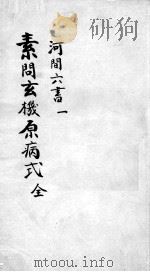 河間六書 一
素問玄機原病式 全
mtoou.info